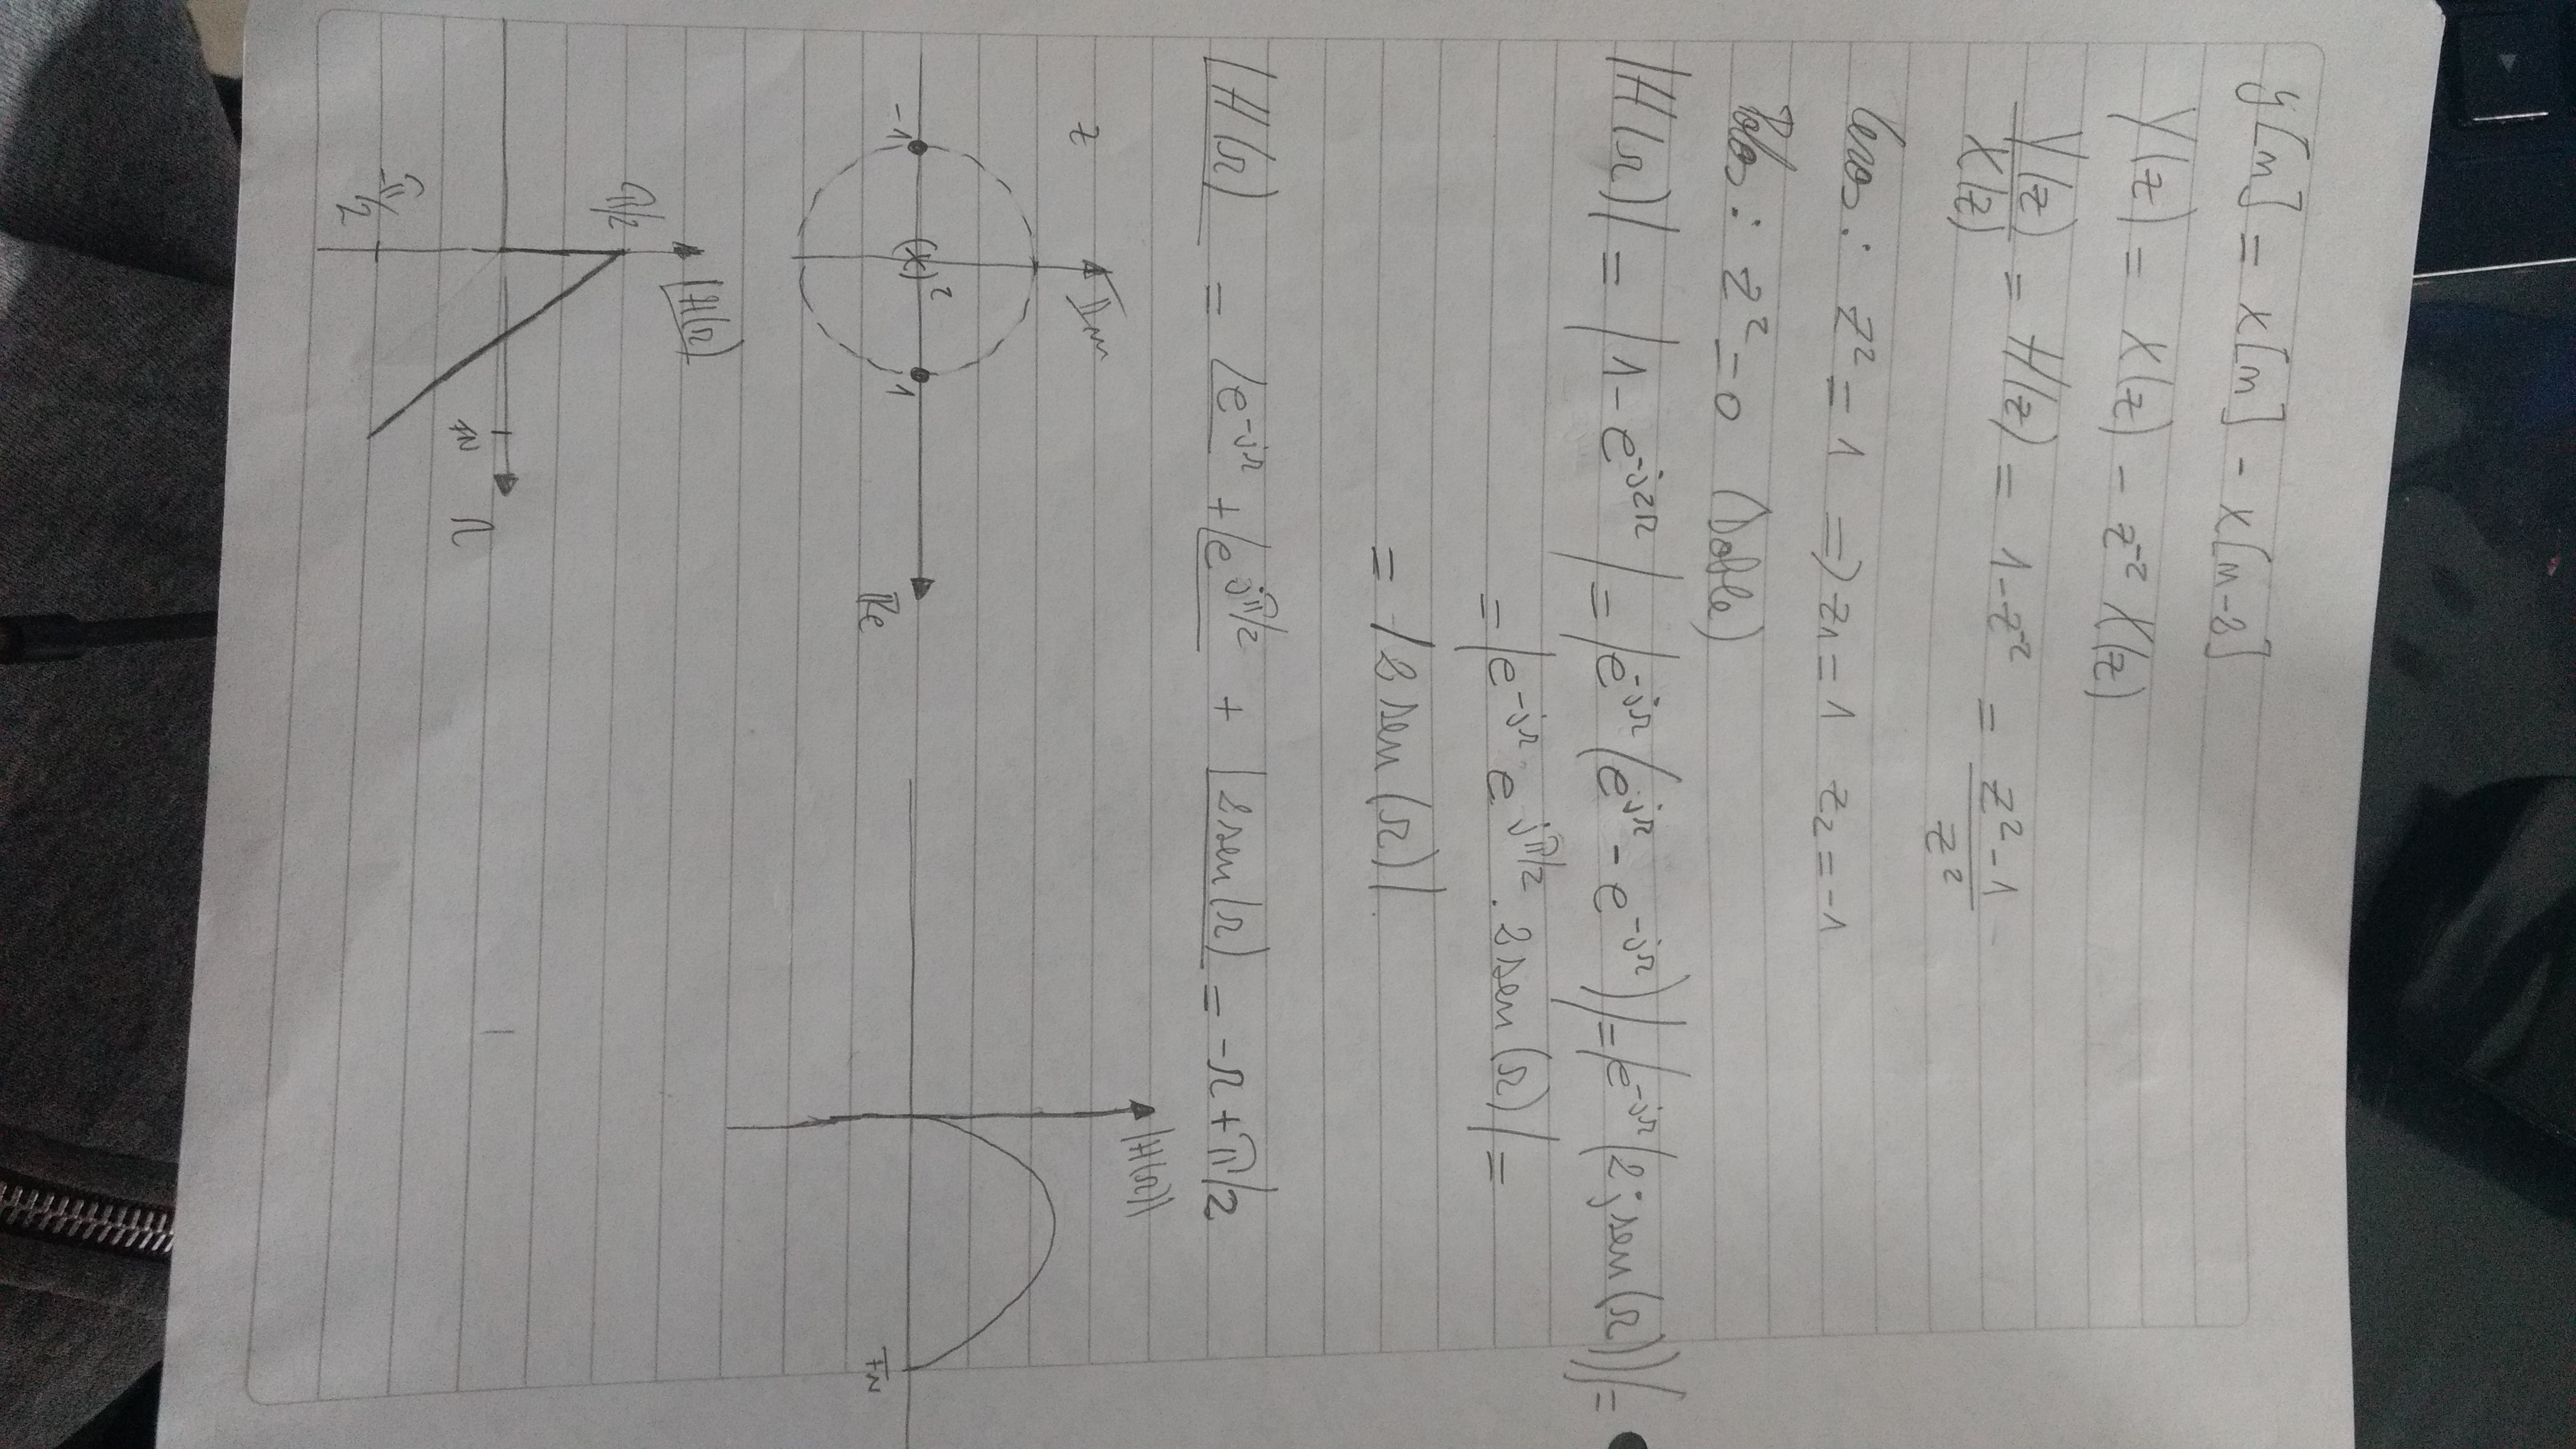 y[n] = x[n] - x[n-2]
Y(z) = X(z) - z⁻² X(z)
Y(z)/X(z) = H(z) = 1 - z⁻² = (z² - 1)/z²
Ceros: z² = 1 => z₁ = 1 z₂ = -1
Polos: z² = 0 (Doble)
|H(Ω)| = |1 - e^{-j2Ω}| = |e^{-jΩ}(e^{jΩ} - e^{-jΩ})| = |e^{-jΩ}(2j sen(Ω))| =
= |e^{-jΩ} e^{jπ/2} . 2 sen(Ω)| =
= |2 sen(Ω)|
∠H(Ω) = ∠e^{-jΩ} + ∠e^{jπ/2} + ∠2sen(Ω) = -Ω + π/2
z Im |H(Ω)|
-1 (x)² 1 Re
π
∠H(Ω)
π/2
π Ω
-π/2